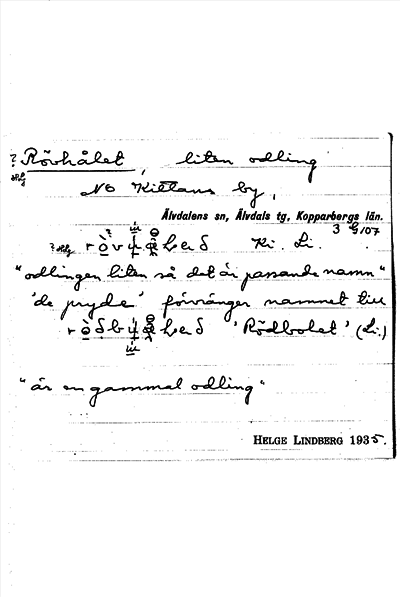 ? Rövhålet, liten odling
NO Kittans by,
Älvdalens sn, Älvdals tg, Kopparbergs län.
3 G 107
Ki. Li.
"odlingen liten så det är passande namn"
'de pryde' förvränger namnet till
'Rödbolet' (Li.)
"är en gammal odling"
HELGE LINDBERG 1935.